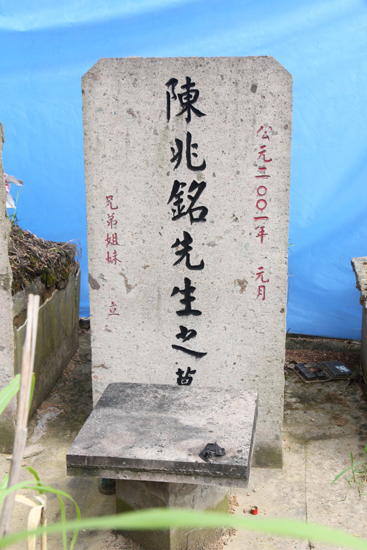 公元二〇〇一年 元月
陳兆銘先生之墓
兄弟姐妹 立